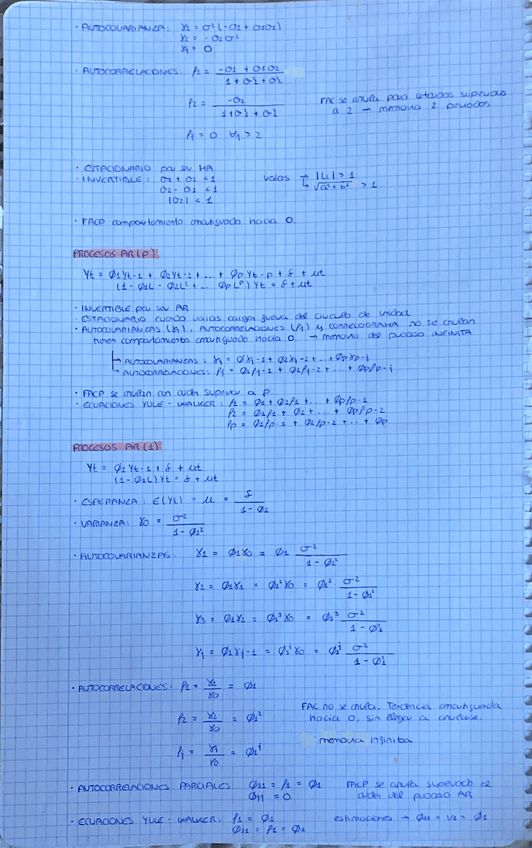 · AUTOCOVARIANZA: γ1 = σ²(-θ1 + θ1θ2)
γ2 = -θ2σ²
γj = 0
· AUTOCORRELACIONES: ρ1 = (-θ1 + θ1θ2) / (1 + θ1² + θ2²)
ρ2 = -θ2 / (1 + θ1² + θ2²)
FAC se anula para retardos superiores
a 2 → memoria 2 periodos
ρj = 0 ∀j > 2
· ESTACIONARIO por ser MA
· INVERTIBLE: θ2 + θ1 < 1
θ2 - θ1 < 1
|θ2| < 1
raíces → |L| > 1
√a² + b² > 1
· FACP comportamiento amortiguado hacia 0.
PROCESOS AR(p)
Yt = φ1Yt-1 + φ2Yt-2 + ... + φpYt-p + δ + ut
(1 - φ1L - φ2L² + ... φpLᵖ) Yt = δ + ut
· INVERTIBLE por ser AR
· ESTACIONARIO cuando raíces caigan fuera del círculo de unidad
· AUTOCOVARIANZAS (γj), AUTOCORRELACIONES (ρj) y CORRELOGRAMA no se anulan
tienen comportamiento amortiguado hacia 0. → memoria del proceso INFINITA
→ AUTOCOVARIANZAS: γj = φ1γj-1 + φ2γj-2 + ... + φpγp-j
→ AUTOCORRELACIONES: ρj = φ1ρj-1 + φ2ρj-2 + ... + φpρp-j
· FACP se anulan con orden superior a p.
· ECUACIONES YULE - WALKER: ρ1 = φ1 + φ2ρ1 + ... + φpρp-1
ρ2 = φ1ρ1 + φ2 + ... + φpρp-2
ρp = φ1ρp-1 + φ2ρp-2 + ... + φp
PROCESOS AR(1)
Yt = φ1Yt-1 + δ + ut
(1 - φ1L)Yt = δ + ut
· ESPERANZA: E(Yt) = μ = δ / (1 - φ1)
· VARIANZA: γ0 = σ² / (1 - φ1²)
· AUTOCOVARIANZAS: γ1 = φ1γ0 = φ1 σ² / (1 - φ1²)
γ2 = φ1γ1 = φ1²γ0 = φ1² σ² / (1 - φ1²)
γ3 = φ1γ2 = φ1³γ0 = φ1³ σ² / (1 - φ1²)
γj = φ1γj-1 = φ1ʲγ0 = φ1ʲ σ² / (1 - φ1²)
· AUTOCORRELACIONES: ρ1 = γ1/γ0 = φ1
ρ2 = γ2/γ0 = φ1²
FAC no se anula. Tendencia amortiguada
hacia 0, sin llegar a anularse.
ρj = γj/γ0 = φ1ʲ
memoria infinita
· AUTOCORRELACIONES PARCIALES: φ11 = ρ1 = φ1
φjj = 0
FACP se anula superado el
orden del proceso AR
· ECUACIONES YULE - WALKER: ρ1 = φ1
φ11 = ρ1 = φ1
estimaciones → φ11 = r1 = φ1